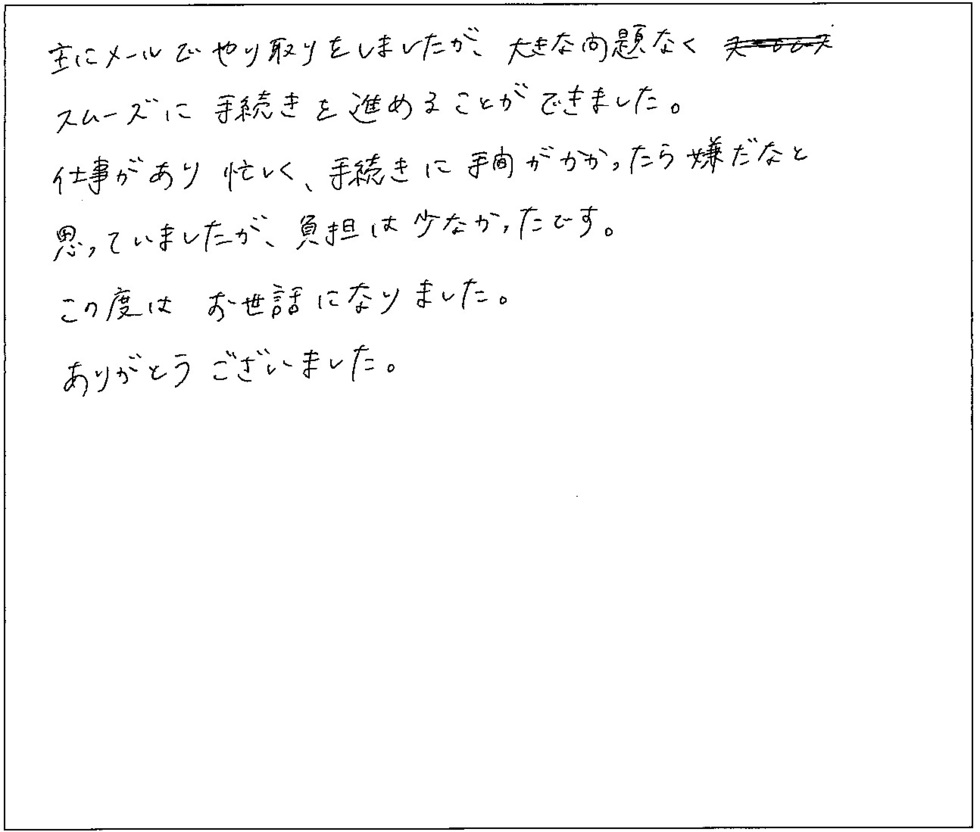 主にメールでやり取りをしましたが、大きな問題なく
スムーズに手続きを進めることができました。
仕事があり忙しく、手続きに手間がかかったら嫌だなと
思っていましたが、負担は少なかったです。
この度はお世話になりました。
ありがとうございました。